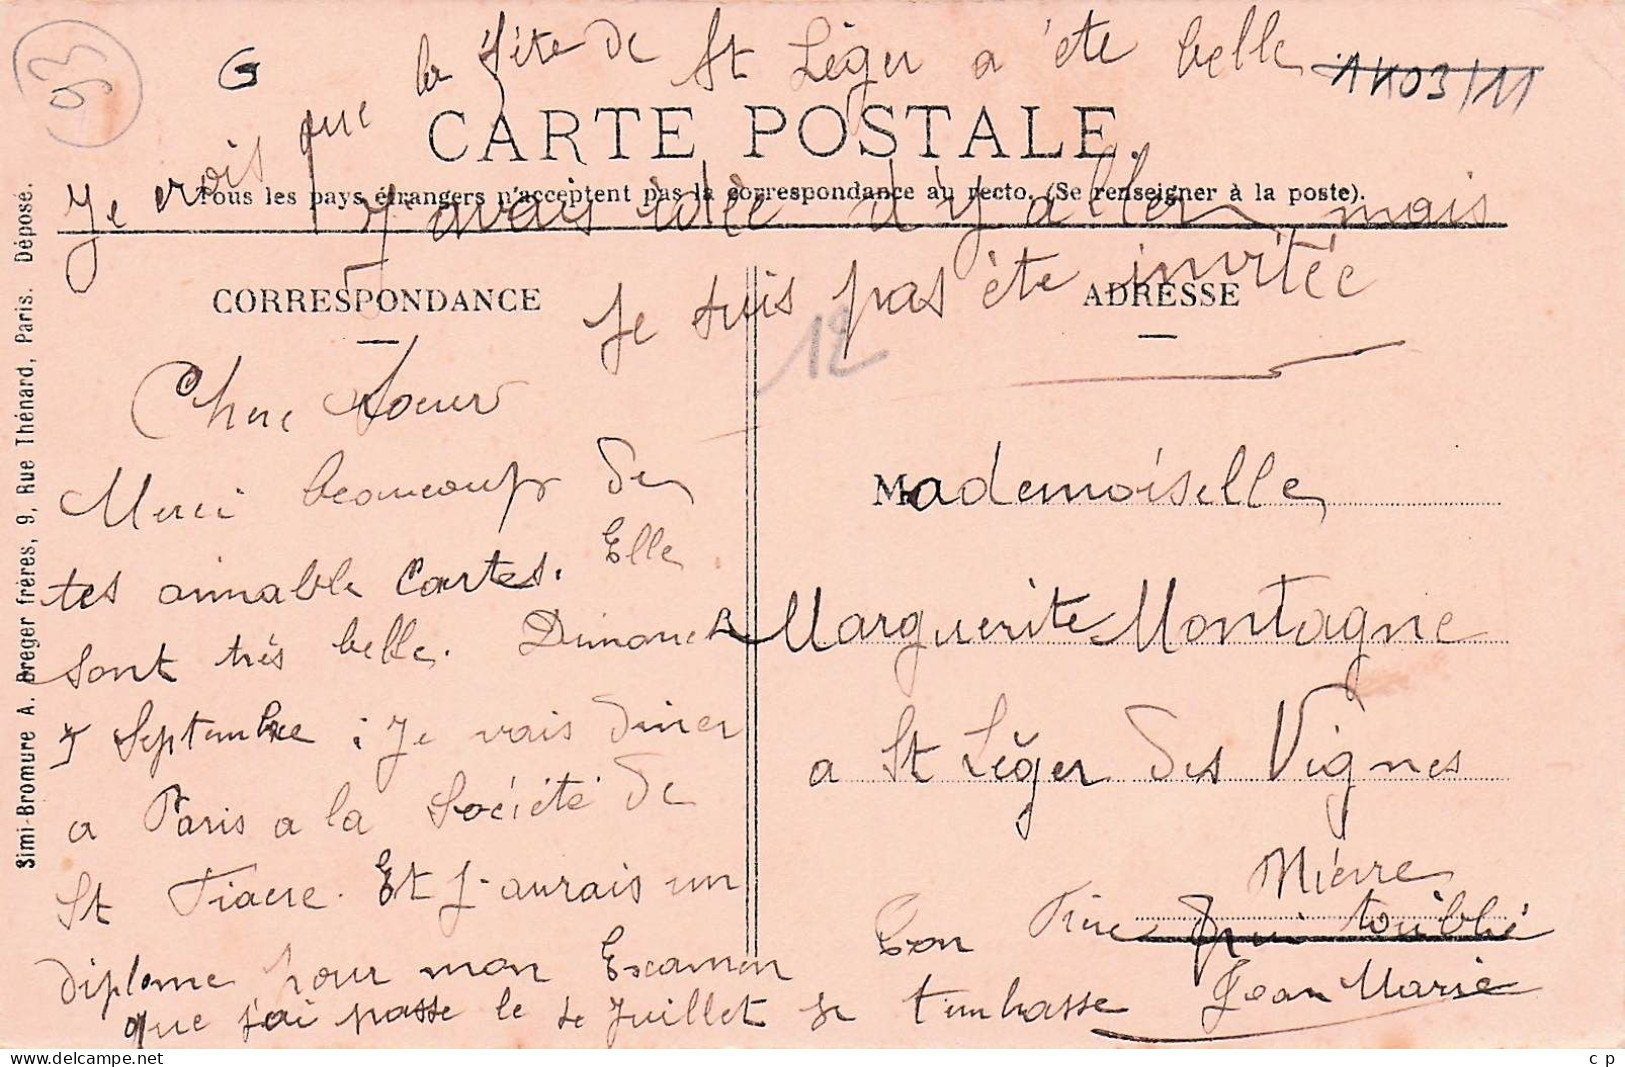 93
G
1403/11
Je crois que la fête de St Léger a été belle
CARTE POSTALE.
Tous les pays étrangers n'acceptent pas la correspondance au recto. (Se renseigner à la poste).
J'avais idée d'y aller mais
Je suis pas été invitée
CORRESPONDANCE
ADRESSE
12
Chere Soeur
Merci beaucoup de
tes aimable Cartes. Elle
sont très belle. Dimanch
7 Septembre ; Je vais diner
a Paris a la Société de
St Fiacre. Et J-aurais un
diplome pour mon Examen
que j'ai passe le Juillet Je
Mademoiselle
Marguerite Montagne
a St Léger des Vignes
Nièvre
Ton Frère qui t'oublie
t'embrasse Jean Marie
Simi-Bromure A. Breger frères, 9, Rue Thénard, Paris. Déposé.
c p